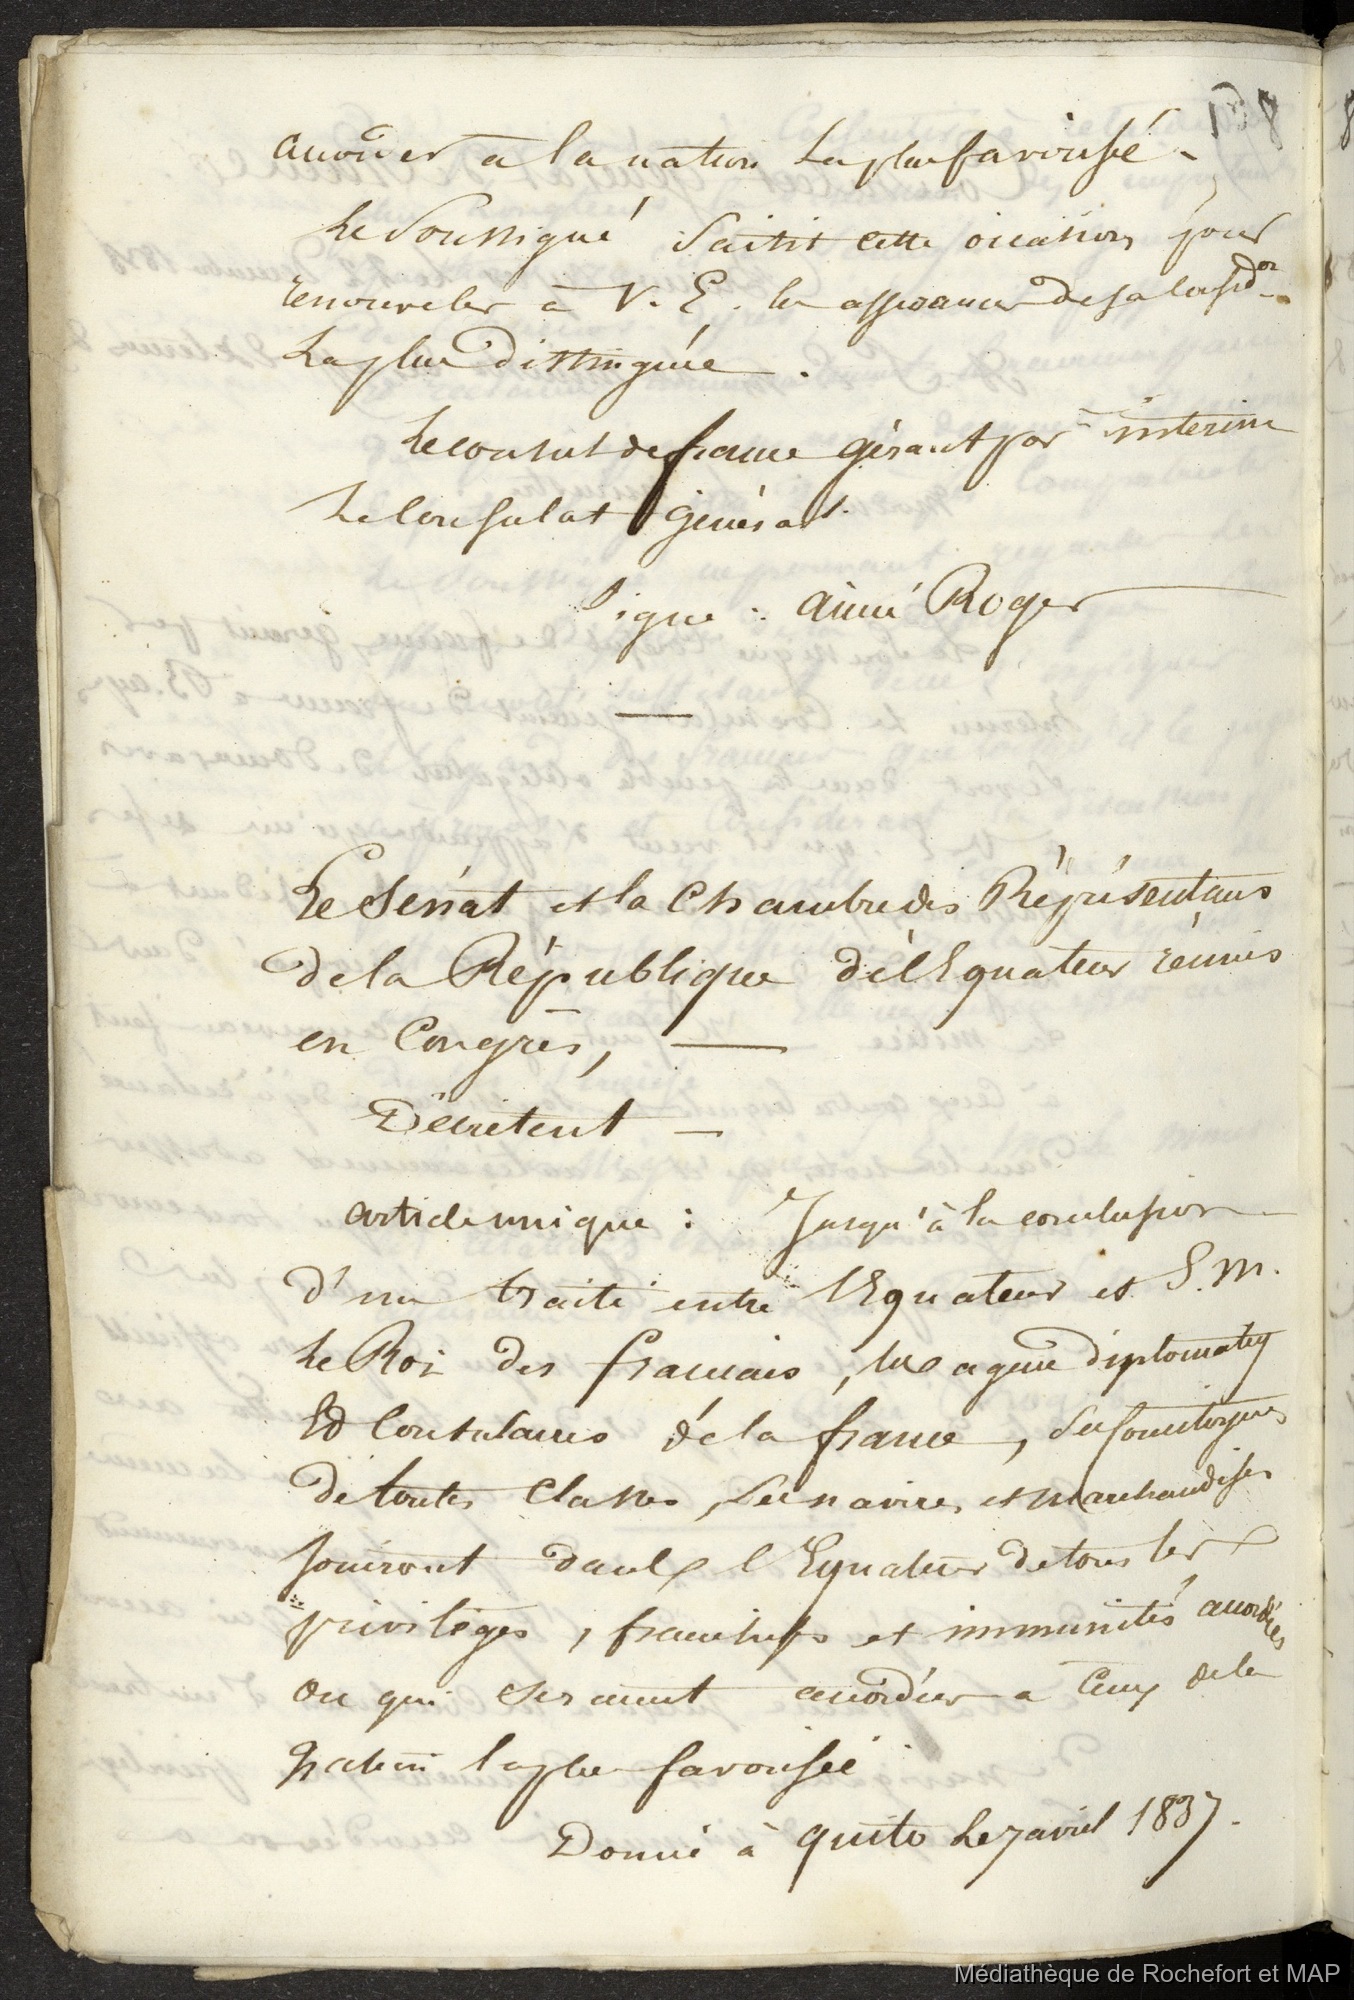 accorder à la nation la plus favorisée.
Le Soussigné Saisit cette occasion pour
renouveler à V. E. les assurances de sa consid.on
La plus Distinguée.
Le consul de france gérant par interim
Le Consulat Général.
Signé : aimé Roger
Le Sénat et la Chambre des Réprésentans
de la République dé l'Equateur réunis
en Congrès,
Décrètent —
article unique : Jusqu'à la conclusion
d'un traité entre l'Equateur et S. M.
Le Roi des francais, les agens diplomatiq
Et Consulaires dé la france, Ses
dé toutes Classes, Ses navires et marchandises
Jouiront dans l'Equateur de tous les
privilèges, franchises et immunités accordés
ou qui seraient accordés a Ceux de la
Nation la plus favorisée
Donné à quito Le 7 avril 1837.
Médiathèque de Rochefort et MAP